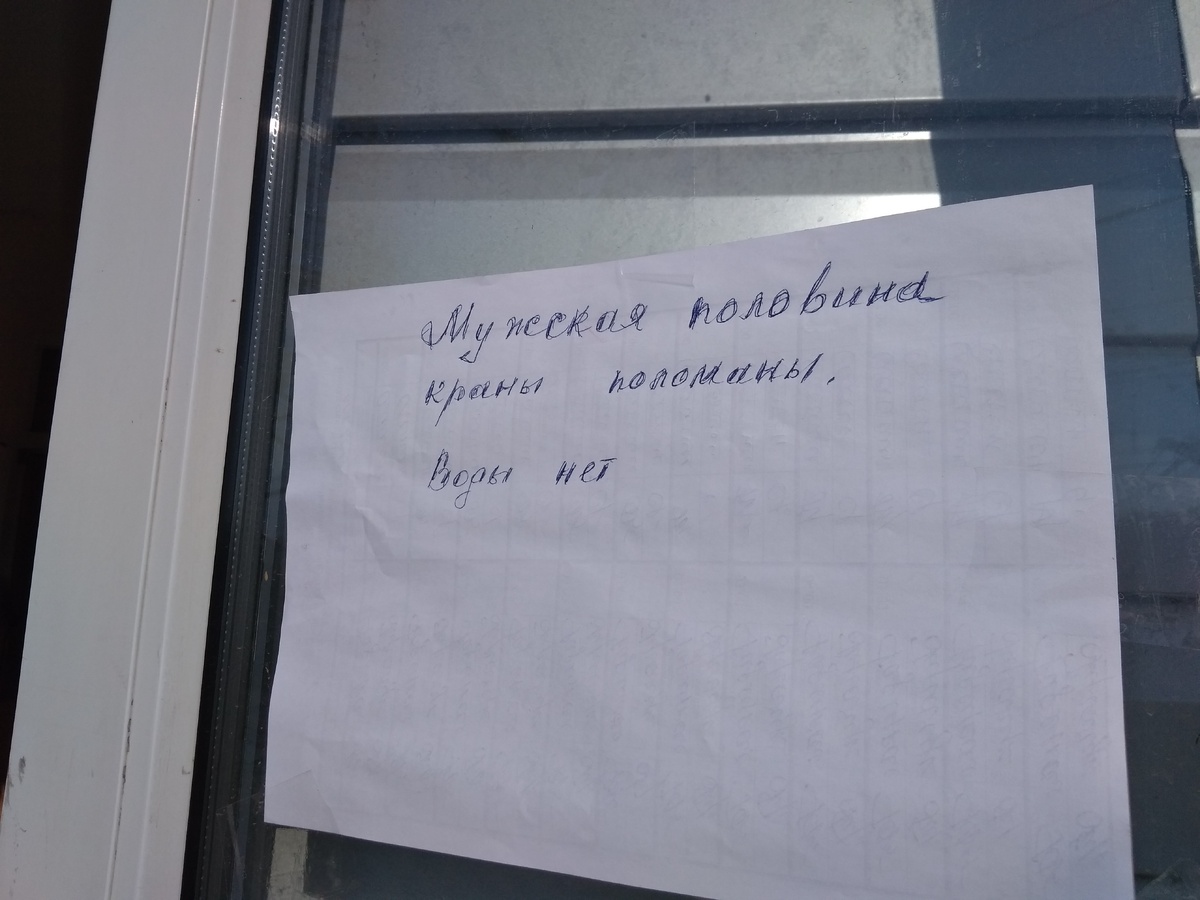 Мужская половина
краны поломаны.
Воды нет